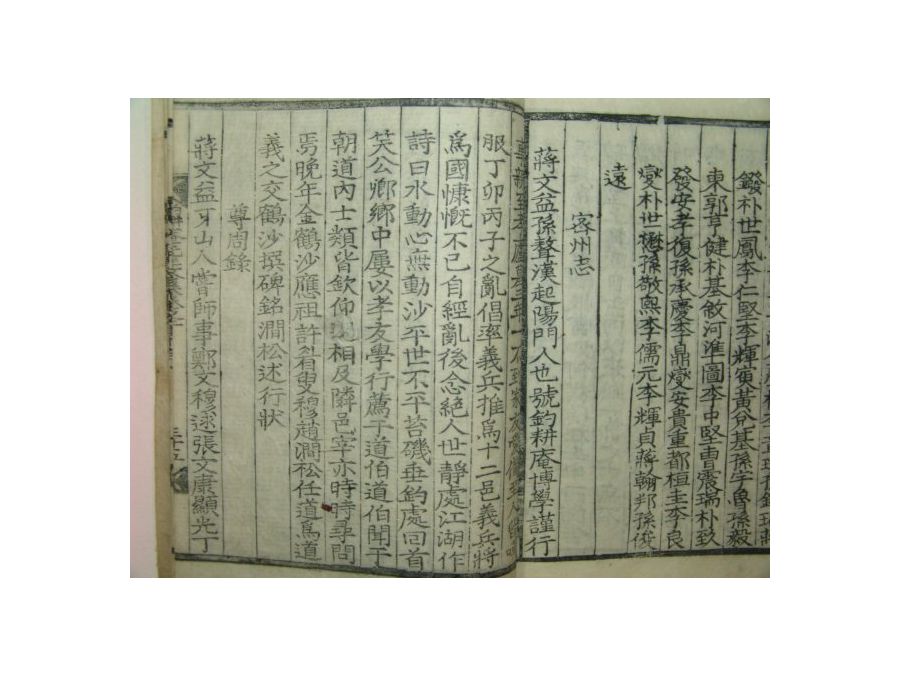 鏺朴世鳳李仁堅李輝賓黃兌基孫宇魯孫毅
東郭亨健朴基敘河淮圖李中堅曺震瑞朴致
發安孝復孫承慶李鼎燮安貴重都桓圭李良
燮朴世楙孫敬熙李儒元李輝貞蔣翰邦孫俊
遠
密州志
蔣文益孫聱漢起陽門人也號釣耕庵博學謹行
服丁卯丙子之亂倡率義兵推爲十二邑義兵將
爲國慷慨不已自經亂後念絕人世靜處江湖作
詩曰水動心無動沙平世不平苔磯垂釣處回首
笑公卿鄉中屢以孝友學行薦于道伯道伯聞于
朝道內士類皆欽仰 相及隣邑宰亦時時尋問
焉晩年金鶴沙應祖許眉叟穆趙澗松任道爲道
義之交鶴沙撰碑銘澗松述行狀
尊周錄
蔣文益牙山人嘗師事鄭文穆逑張文康顯光丁
三十五